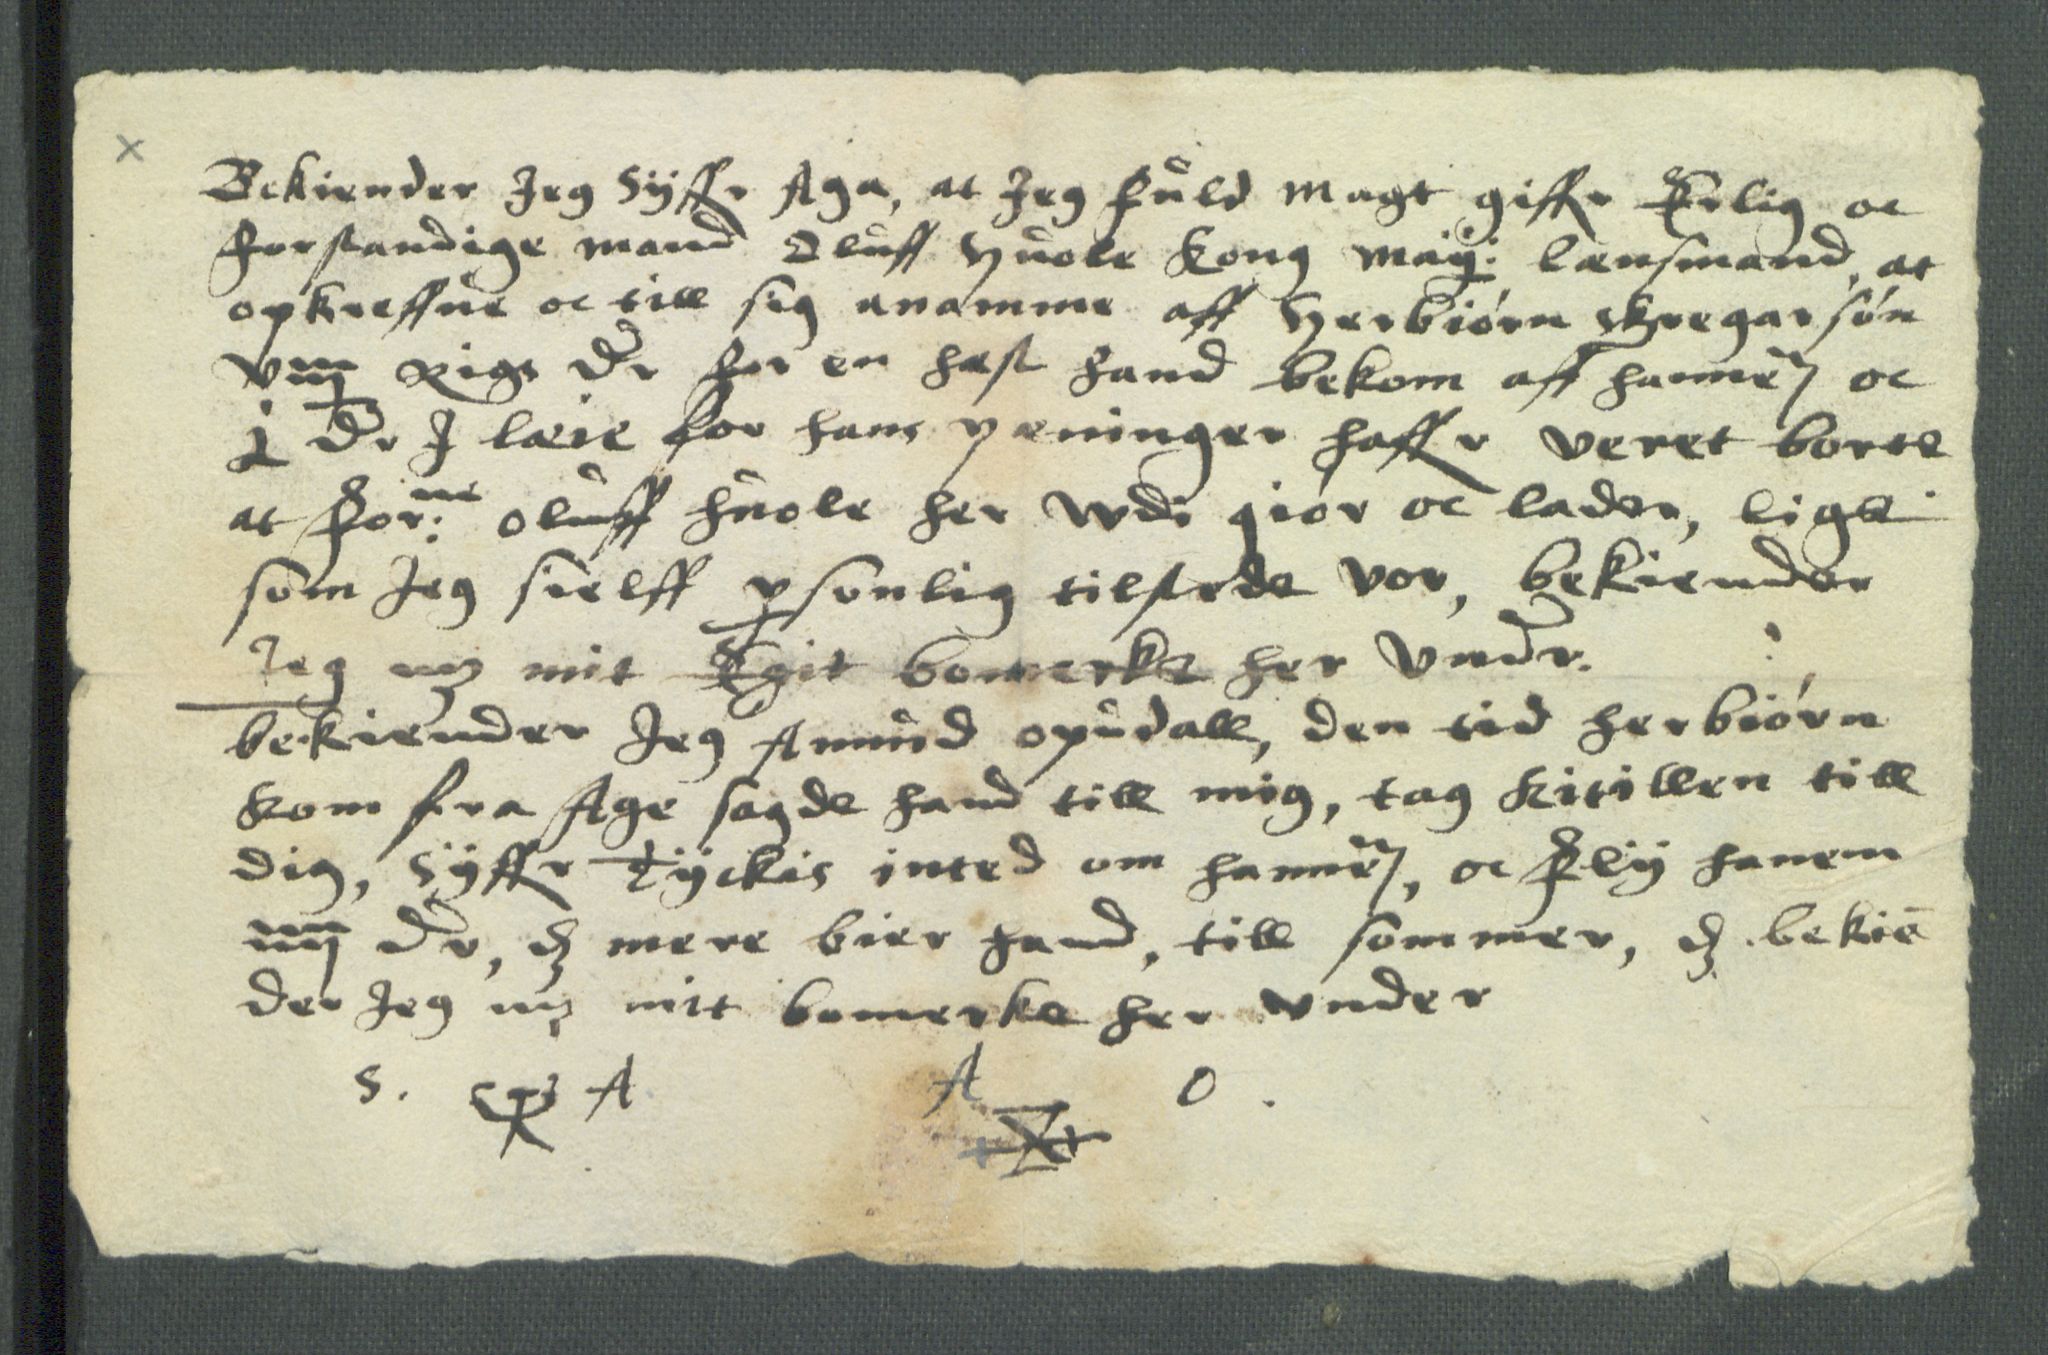 Bekiender Jeg Syffr Aga, at Jeg fuld magt giffr Erlig oc
forstandige mand Oluff Huole Kong May: lænsmand, at
opkreffue oc till sig anamme aff Herbiørn Skregarsøn
viiij rigs dr for en hæst hand bekom aff hannem oc
j dr J læie for hans pæninger haffr veret borte
at for:ne oluff huole her wdi giør oc lader, lige
som Jeg sielff personlig tilstede vor, bekiender
Jeg m3 mit Egit bomerke her vndr.
bekiender Jeg Amund opudall, den tid herbiørn
kom fra Age sagde hand till mig, tag kitillen till
dig, Syffr Tyckis inted om hannem, oc fly hanem
iiij dr, d3 mere bier hand, till sommer, d3 bekiē
der Jeg m3 mitt bomerke her vnder
S. A A O.